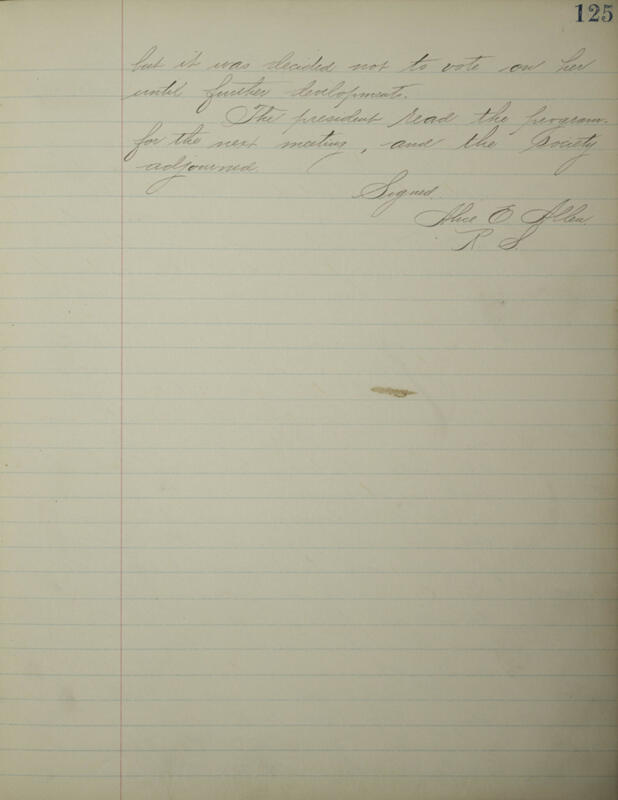 125
but it was decided not to vote on her
until further development.
The president read the program
for the next meeting, and the Society
adjourned.
Signed
Alice E Allen
R S